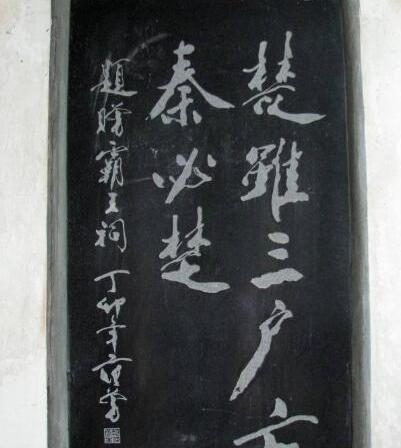 楚雖三户亡
秦必楚
題贈霸王祠 丁卯年 范曾